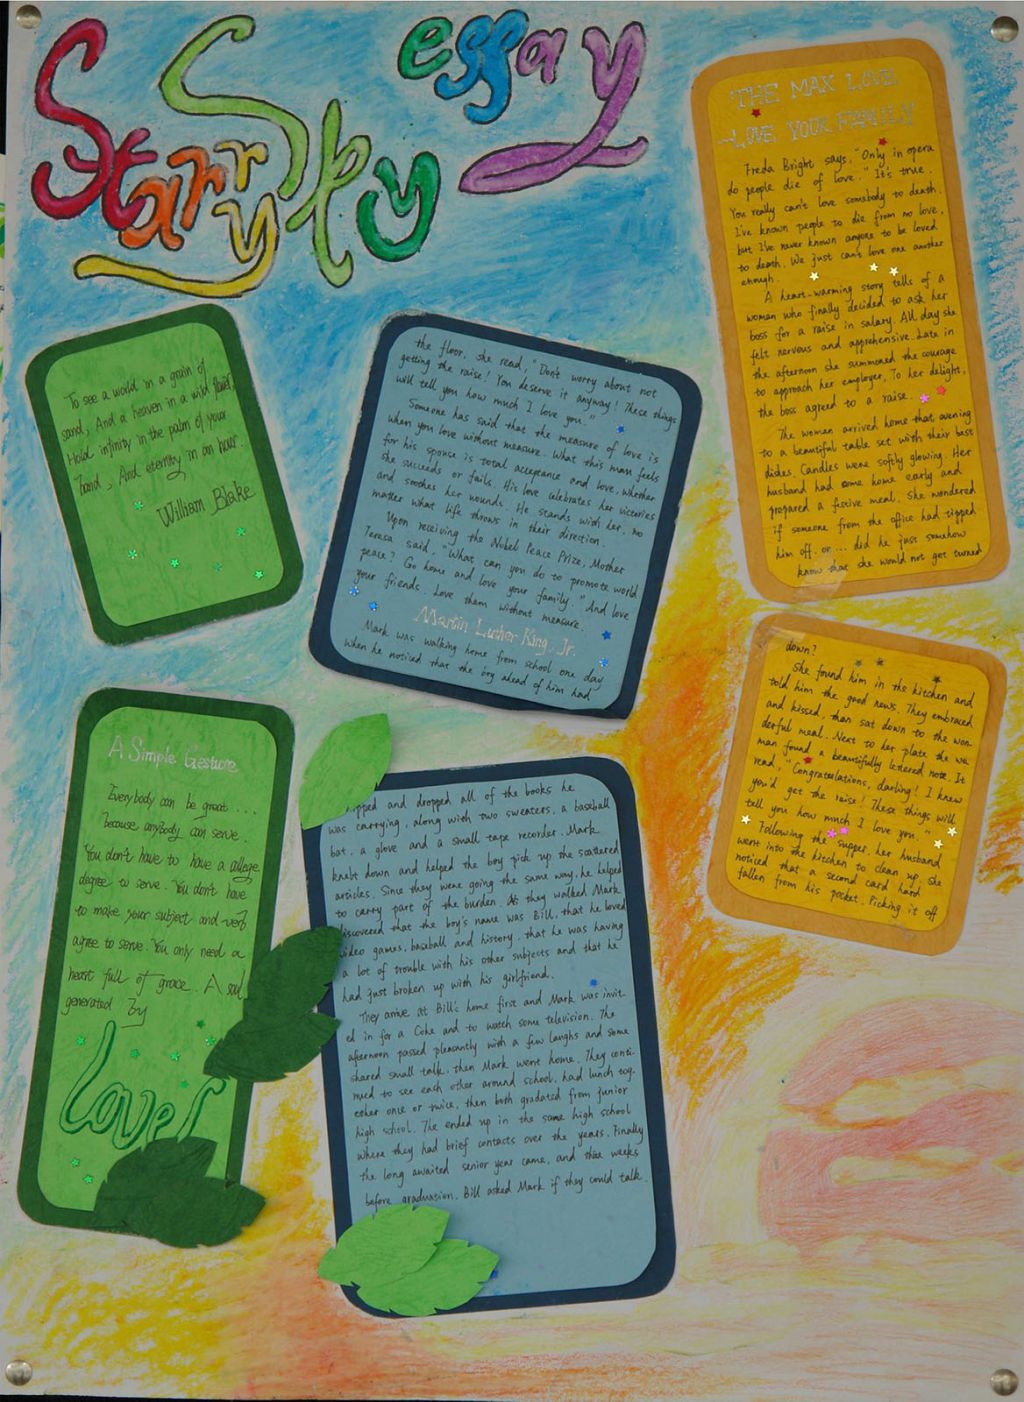 Starry Sky essay
THE MAX LOVE
-LOVE YOUR FAMILY
Freda Bright says, "Only in opera
do people die of love." It's true.
You really can't love somebody to death.
I've known people to die from no love,
but I've never known anyone to be loved
to death. We just can't love one another
enough.
A heart-warming story tells of a
woman who finally decided to ask her
boss for a raise in salary. All day she
felt nervous and apprehensive. Late in
the afternoon she summoned the courage
to approach her employer, To her delight,
the boss agreed to a raise.
The woman arrived home that evening
to a beautiful table set with their best
dishes. Candles were softly glowing. Her
husband had come home early and
prepared a festive meal. She wondered
if someone from the office had tipped
him off. or... did he just somehow
know that she would not get turned
down?
She found him in the kitchen and
told him the good news. They embraced
and kissed, then sat down to the won-
derful meal. Next to her plate the wo
man found a beautifully lettered note. It
read, "Congratulations, darling! I knew
you'd get the raise! These things will
tell you how much I love you."
Following the supper, her husband
went into the kitchen to clean up, she
noticed that a second card hard
fallen from his pocket. Picking it off
the floor, she read, "Don't worry about not
getting the raise! You deserve it anyway! These things
will tell you how much I love you."
Someone has said that the measure of love is
when you love without measure. What this man feels
for his spouse is total acceptance and love, whether
she succeeds or fails. His love celebrates her victories
and soothes her wounds. He stands with her, no
matter what life throws in their direction.
Upon receiving the Nobel Peace Prize, Mother
Teresa said, "What can you do to promote world
peace? Go home and love your family." And love
your friends. Love them without measure.
Martin Luther King, Jr.
Mark was walking home from school one day
when he noticed that the boy ahead of him had
and dropped all of the books he
was carrying, along with two sweaters, a baseball
bat, a glove and a small tape recorder. Mark
knelt down and helped the boy pick up the scattered
articles. Since they were going the same way, he helped
to carry part of the burden. As they walked Mark
discovered that the boy's name was Bill, that he loved
video games, baseball and history, that he was having
a lot of trouble with his other subjects and that he
had just broken up with his girlfriend.
They arrive at Bill's home first and Mark was invit-
ed in for a Coke and to watch some television. The
afternoon passed pleasantly with a few laughs and some
shared small talk, then Mark went home. They conti-
nued to see each other around school, had lunch tog
ether once or twice, then both gradated from junior
high school. The ended up in the same high school
where they had brief contacts over the years. Finally
the long awaited senior year came, and three weeks
before graduation, Bill asked Mark if they could talk.
To see a world in a grain of
sand, And a heaven in a wild flower,
Hold infinity in the palm of your
hand, And eternity in an hour.
William Blake
A Simple Gesture
Everybody can be great...
because anybody can serve.
You don't have to have a college
degree to serve. You don't have
to make your subject and verb
agree to serve. You only need a
heart full of grace. A soul
generated By
Love!